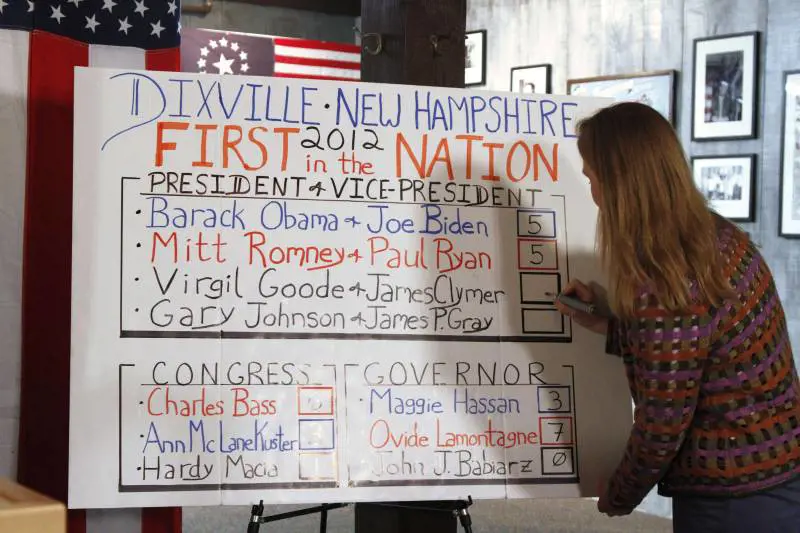 DIXVILLE · NEW HAMPSHIRE
FIRST 2012 in the NATION
PRESIDENT & VICE-PRESIDENT
· Barack Obama & Joe Biden 5
· Mitt Romney & Paul Ryan 5
· Virgil Goode & James Clymer
· Gary Johnson & James P. Gray
CONGRESS
· Charles Bass
· Ann McLane Kuster
· Hardy Macia
GOVERNOR
· Maggie Hassan 3
Ovide Lamontagne 7
John J. Babiarz Ø